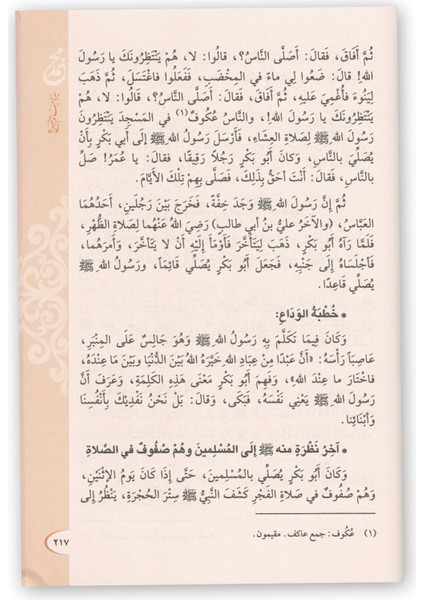 ثُمَّ أَفَاقَ، فَقَالَ: أَصَلَّى النَّاسُ؟، قالُوا: لا، هُمْ يَنْتَظِرُونَكَ يا رَسُولَ
اللهِ! قالَ: ضَعُوا لِي ماءً في المِخْضَبِ، فَفَعَلُوا فَاغْتَسَلَ، ثُمَّ ذَهَبَ
لِيَنُوءَ فَأُغْمِيَ عَلَيهِ، ثُمَّ أَفَاقَ، فَقَالَ: أَصَلَّى النَّاسُ؟، قَالُوا: لا، هُمْ
يَنْتَظِرُونَكَ يا رَسُولَ اللهِ!، والنَّاسُ عُكُوفٌ(١) في المَسجِدَ يَنتَظِرُونَ
رَسُولَ اللهِ ﷺ لِصَلاةِ العِشَاءِ، فَأَرْسَلَ رَسُولُ اللهِ ﷺ إِلَى أَبي بَكْرٍ بِأَنْ
يُصَلِّيَ بالنَّاسِ، وَكَانَ أَبُو بَكْرٍ رَجُلاً رَقِيقًا، فَقَالَ: يا عُمَرُ! صَلِّ
بالنَّاسِ، فَقَالَ: أَنْتَ أَحَقُّ بِذَلِكَ، فَصَلَّى بِهِمْ تِلْكَ الأَيَّامَ.
ثُمَّ إِنَّ رَسُولَ اللهِ ﷺ وَجَدَ خِفَّةً، فَخَرَجَ بَيْنَ رَجُلَينِ، أَحَدُهُمَا
العَبَّاسُ، (والآخَرُ عليُّ بنُ أبي طالبٍ) رَضِيَ اللهُ عَنْهُما لِصَلاةِ الظُّهْرِ،
فَلَمَّا رَآهُ أَبُو بَكْرٍ، ذَهَبَ لِيَتَأَخَّرَ فَأَوْمَأَ إِلَيْهِ أَنْ لا يَتَأَخَّرَ، وأَمَرَهُما،
فَأَجْلَسَاهُ إِلَى جَنْبِهِ، فَجَعَلَ أَبُو بَكْرٍ يُصَلِّي قَائِمًا، ورَسُولُ اللهِ ﷺ
يُصَلِّي قَاعِدًا.
• خُطْبَةُ الوَدَاعِ:
وَكَانَ فِيمَا تَكَلَّمَ بِهِ رَسُولُ اللهِ ﷺ وَهُوَ جَالِسٌ عَلَى المِنْبَرِ،
عَاصِبًا رَأْسَهُ: «أَنَّ عَبْدًا مِنْ عِبَادِ اللهِ خَيَّرَهُ اللهُ بَيْنَ الدُّنْيَا وَبَيْنَ مَا عِنْدَهُ،
فَاخْتَارَ ما عِنْدَ اللهِ»، وَفَهِمَ أَبُو بَكْرٍ مَعْنَى هَذِهِ الكَلِمَةِ، وَعَرَفَ أَنَّ
رَسُولَ اللهِ ﷺ يَعْنِي نَفْسَهُ، فَبَكَى، وَقَالَ: بَلْ نَحْنُ نَفْدِيْكَ بِأَنْفُسِنَا
وَأَبْنَائِنَا.
• آخِرُ نَظْرَةٍ منه ﷺ إِلَى المُسْلِمينَ وهُمْ صُفُوفٌ في الصَّلاةِ
وَكَانَ أَبُو بَكْرٍ يُصَلِّي بالمُسلِمينَ، حَتَّى إِذَا كَانَ يَومُ الإثْنَيْنِ،
وَهُمْ صُفُوفٌ في صَلاةِ الفَجْرِ كَشَفَ النَّبِيُّ ﷺ سِتْرَ الحُجْرَةِ، يَنْظُرُ إِلى
(١) عُكُوف: جمع عاكف. مقيمون.
٢١٧